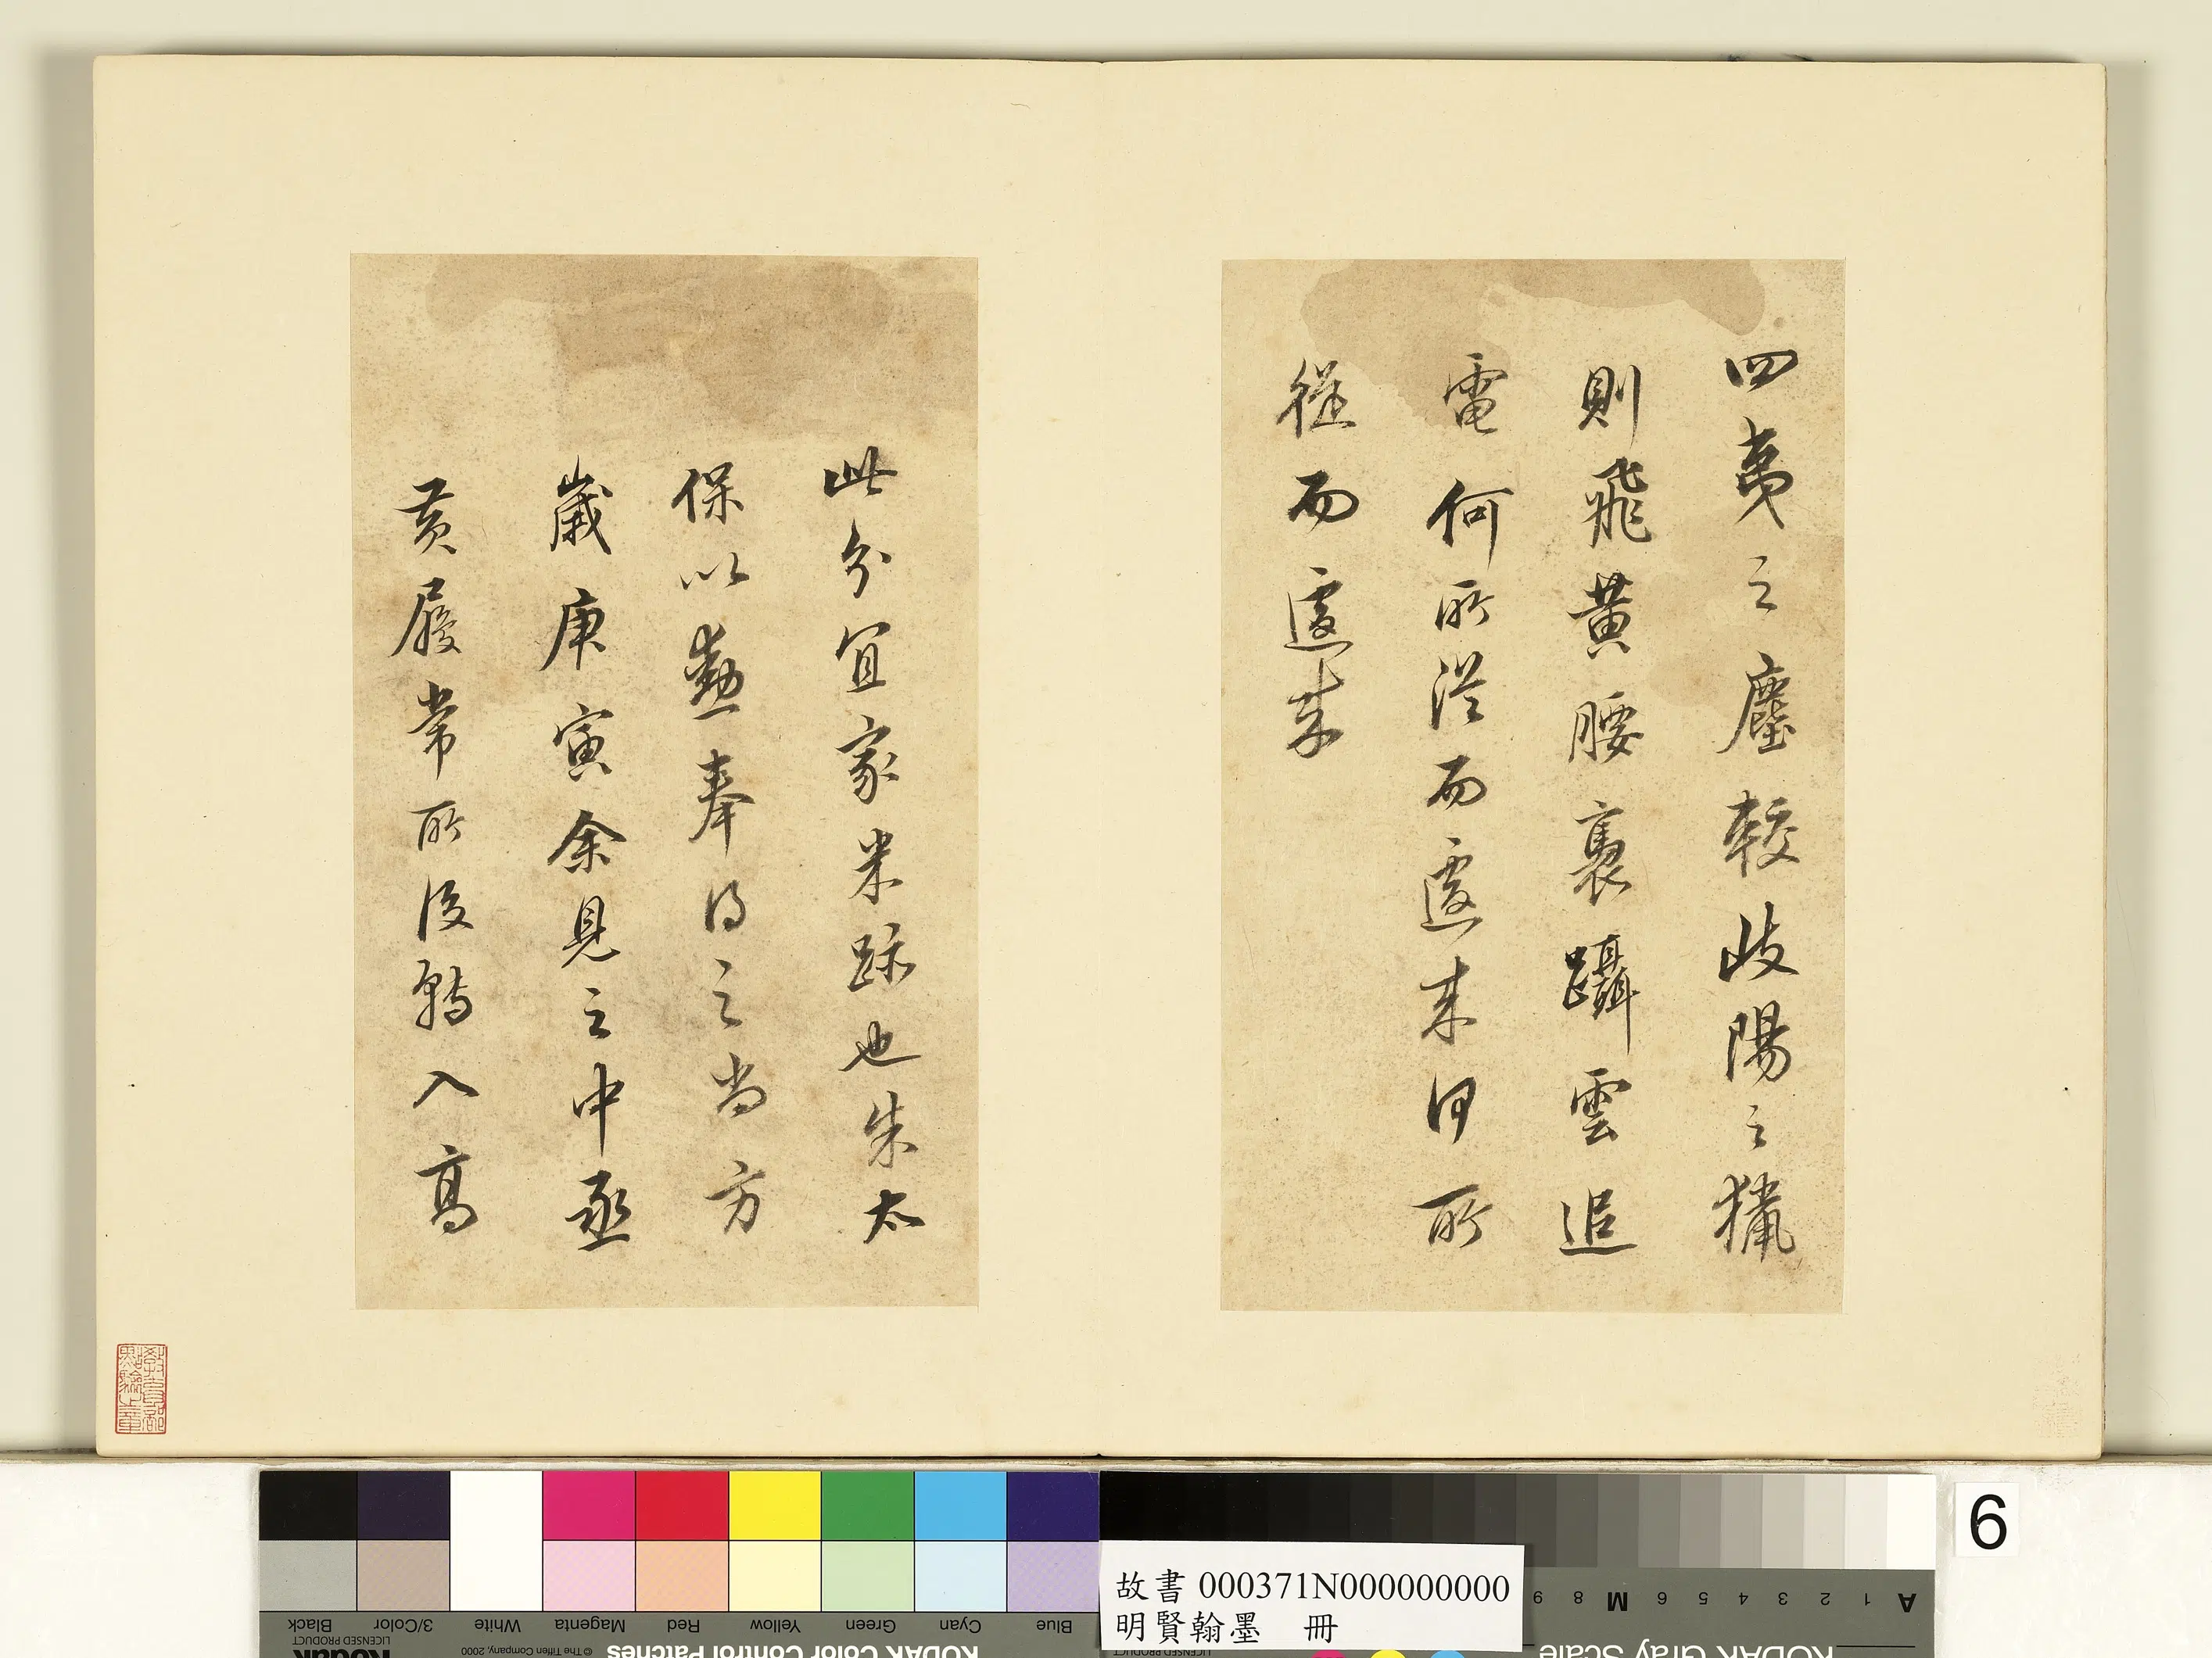 四夷之塵較岐陽之獵
則飛黃腰裹躡雲追
電何所從而遽來何所
從而遽來
此分宜家米跡也朱太
保以勳奉得之尚方
歲庚寅余見之中丞
黃履常所後轉入高
6
故書 000371N000000000
明賢翰墨 冊
Black
3/Color
White
Magenta
Red
Yellow
Green
Cyan
Blue
LICENSED PRODUCT
© The Tiffen Company, 2000
Kodak
KODAK Color Control Patches
LICENSED PRODUCT
KODAK Gray Scale
A 1 2 3 4 5 6 M 8 9